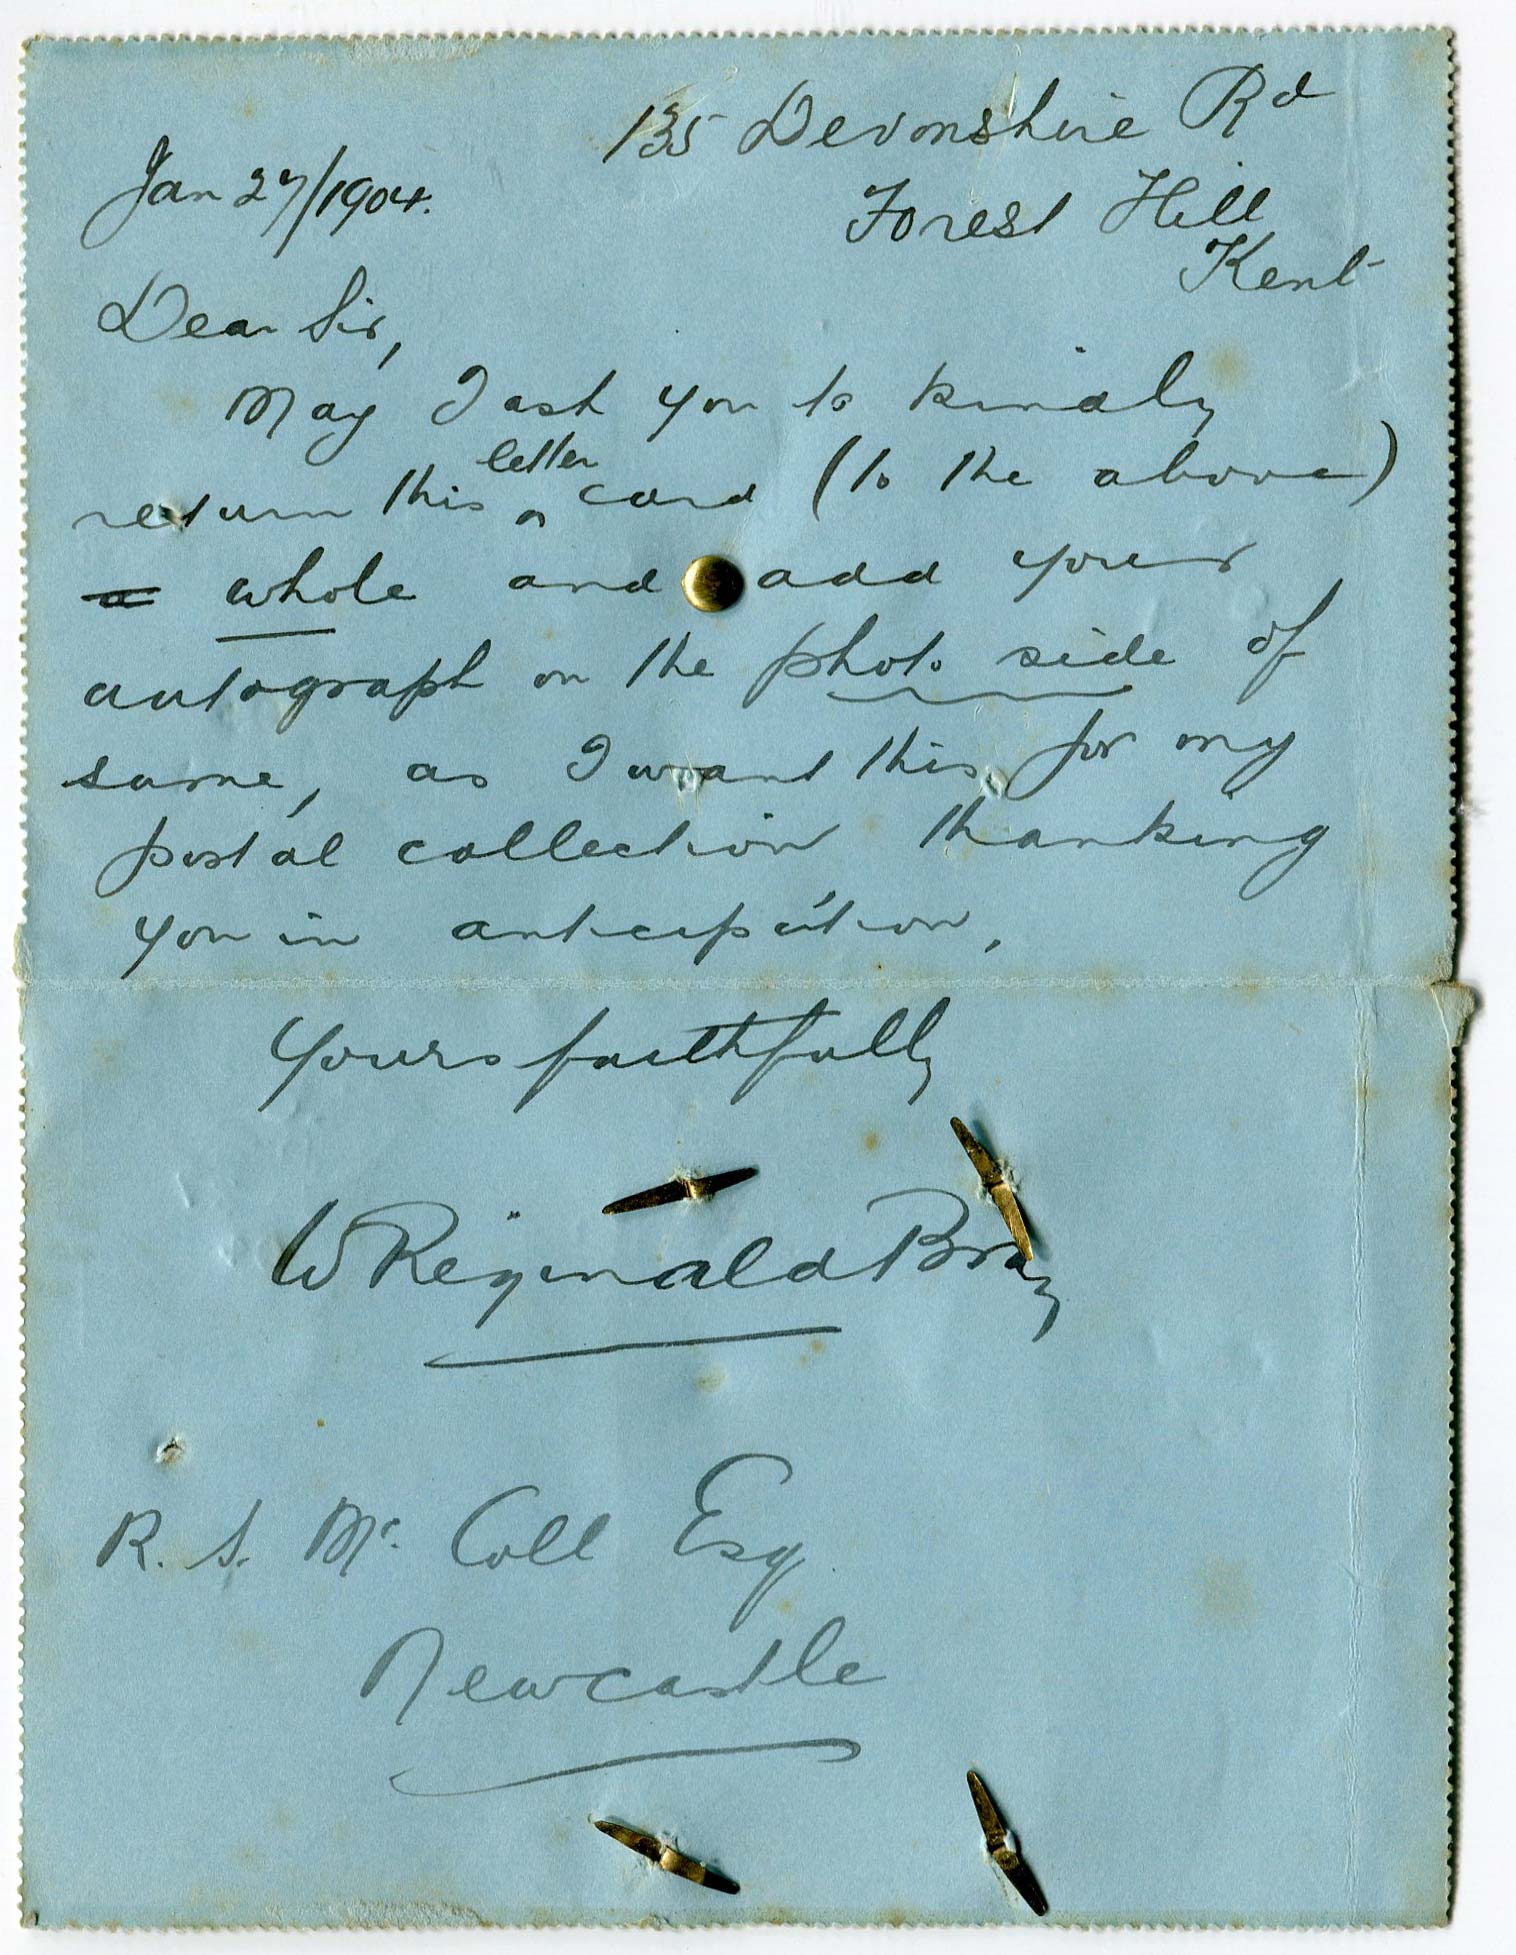 135 Devonshire Rd
Jan 27/1904.
Forest Hill
Kent
Dear Sir,
May I ask you to kindly
return this letter card (to the above)
whole and add your
autograph on the photo side of
same, as I want this for my
postal collection thanking
you in anticipation,
Yours faithfully
W Reginald Bray
R. S. Mc. Coll Esq
Newcastle